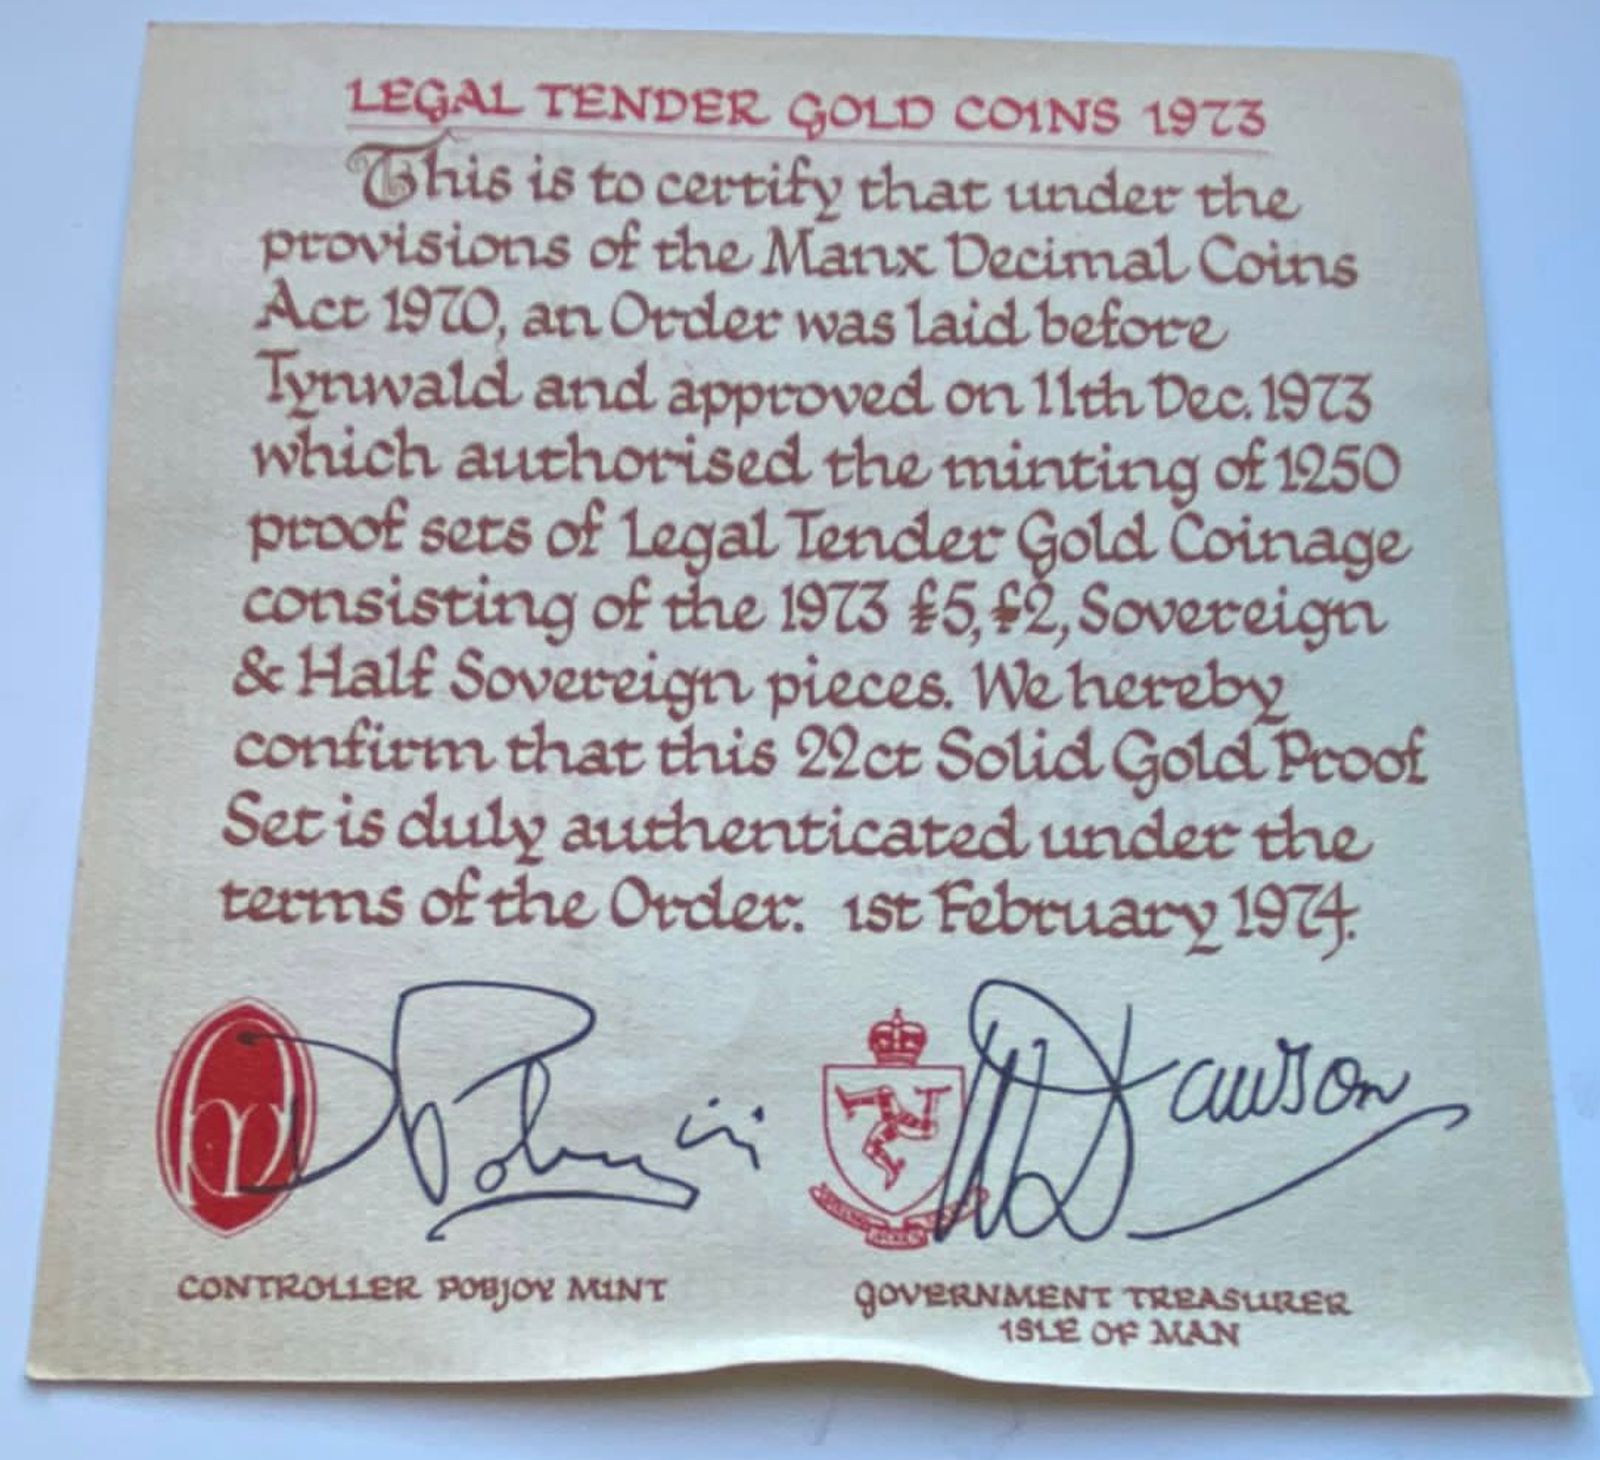 LEGAL TENDER GOLD COINS 1973
This is to certify that under the
provisions of the Manx Decimal Coins
Act 1970, an Order was laid before
Tynwald and approved on 11th Dec. 1973
which authorised the minting of 1250
proof sets of Legal Tender Gold Coinage
consisting of the 1973 £5, £2, Sovereign
& Half Sovereign pieces. We hereby
confirm that this 22ct Solid Gold Proof
Set is duly authenticated under the
terms of the Order. 1st February 1974.
Dawson
CONTROLLER POBJOY MINT
GOVERNMENT TREASURER
ISLE OF MAN